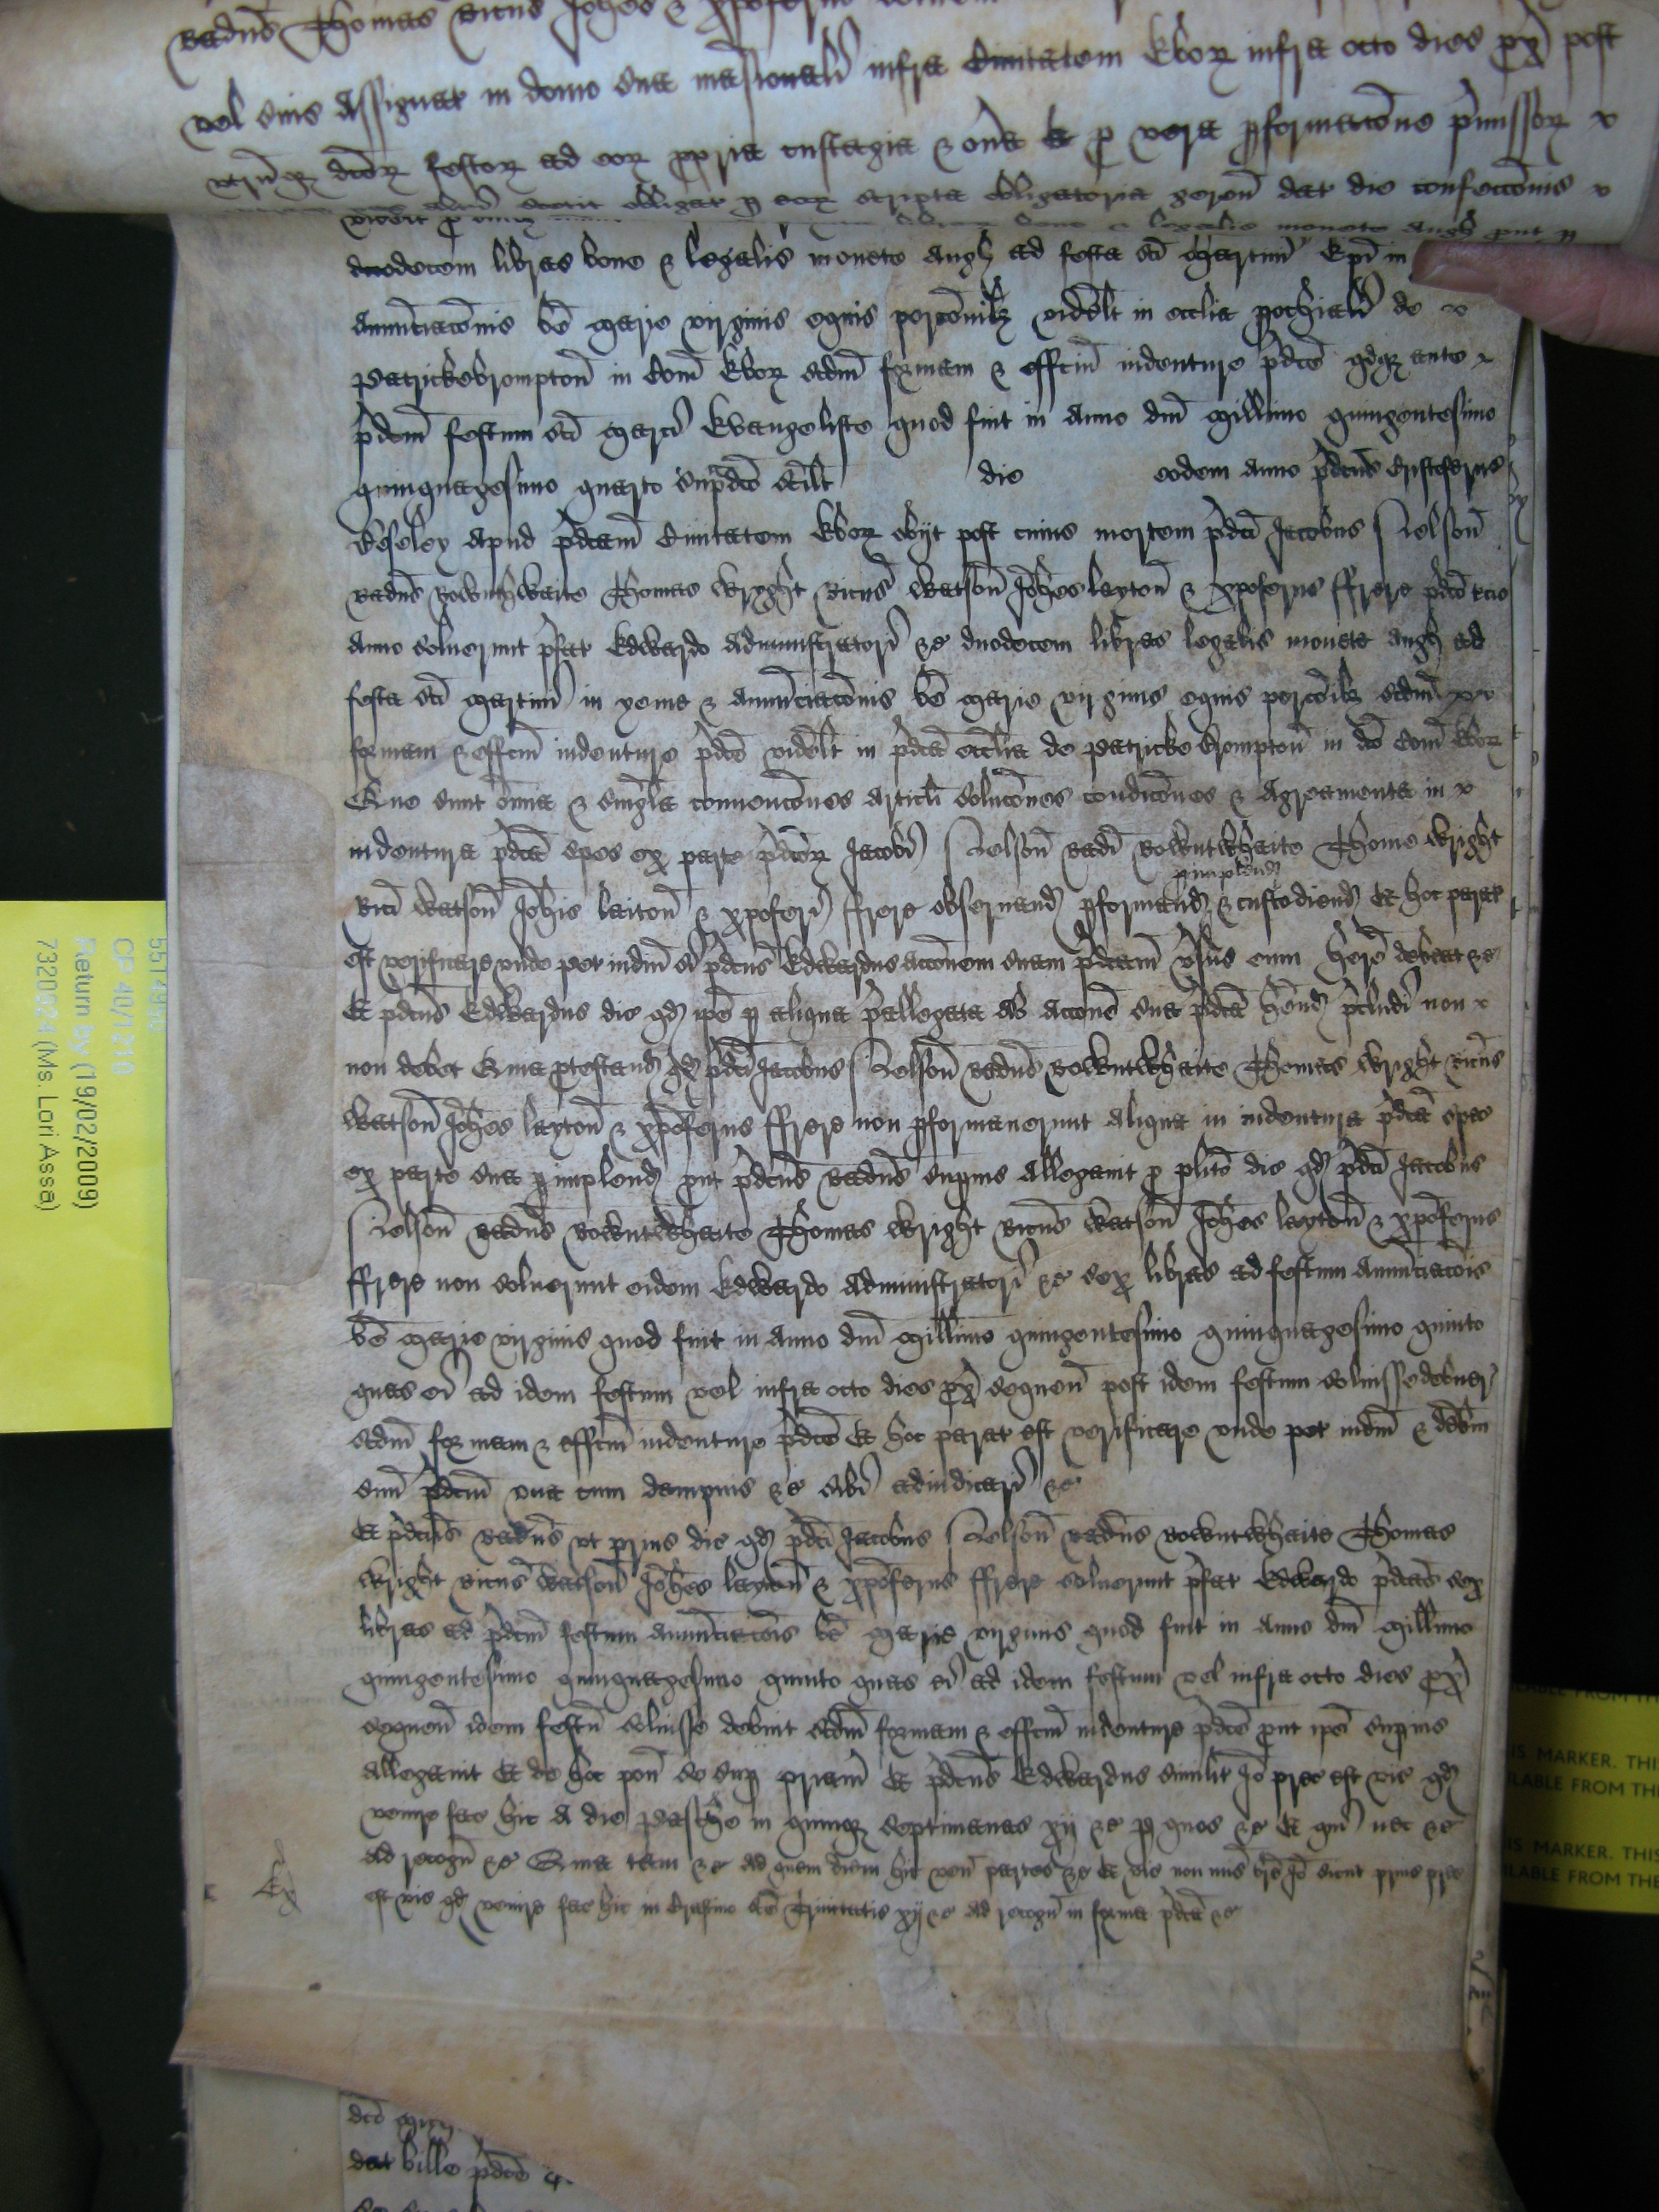 Radus Thomas Ricus Johes & xpoferus
vel suis assignat in domo sua mansionali infra Civitatem Ebor infra octo dies px post
utrumqz dcor festor ad eor ppria custagia & onera Et p vera pformacone pmissor
obligat p eor scripta obligatoria geren dat die confecconis
duodecim libras bone & legalis monete Angl ad festa sci Martini Epi in
Annunciacionis be Marie virginis equis porconibz videlt in ecclia pochiali de
Patrickebrompton in Com Ebor scdm formam & effcm indenture pdce qdqz ante
pdcm festum sci Marci Evangeliste quod fuit in Anno dni Millimo quingentesimo
quinquagesimo quarto supdco scilt die eodem anno pdcus Cristoferus
Beseley apud pdcam Civitatem Ebor obijt post cuius mortem pdci Jacobus Nelson
Radus Rownthwaite Thomas Wryght Ricus Watson Johes Layton & Xpoferus ffrere pdco
anno solverunt pfat Edwardo Administratori &c duodecim libras legalis monete Angl ad
festa sci Martini in yeme & Annunciaconis be Marie virginis equis porconibz scdm
formam & effcm indenture pdce videlt in pdca ecclia de Patricke brompton in dco Com Ebor
Que sunt omnia & singla convencones articli solucones condicones & Agreamenta in
indentura pdca spec ex parte pdcor Jacobi Nelson Radi Rowntwhaite Thome Wright
pimplend
Rici Watson Johis Laiton & Xpoferi ffrere observand pformand & custodiend Et hoc parat
est verificare unde pet iudm si pdcus Edwardus accionem suam pdcam vsus eum here debeat &c
Et pdcus Edwardus dic qd ipe p aliqua pallegata ab accone sua pdca hend pcludi non
non debet Quia ptestand qd pdci Jacobus Nelson Radus Rowntwhaite Thomas Wright Ricus
Watson Johes Layton & Xpoferus ffrere non pformaverunt aliqua in indentura pdca spec
ex parte sua pimplend put pdcus Radus supius allegavit p plito dic qd pdci Jacobus
Nelson Radus Rowntwhaite Thomas Wright Ricus Watson Johes Layton & Xpoferus
ffrere non solverunt eidem Edwardo Administratori &c sex libras ad festum Annunciacois
be Marie virginis quod fuit in Anno dni Millimo quingentesimo quinquagesimo quinto
quas ei ad idem festum vel infra octo dies px sequen post idem festum solvisse debuer
scdm formam & effcm indenture pdce Et hoc parat est verificare unde pet iudm & debm
suu pdcm una cum dampnis &c sibi adiudicari &c
Et pdcus Radus ut prius dic qd pdci Jacobus Nelson Radus Rowntwhaite Thomas
Wright Ricus Watson Johes Layton & Xpoferus ffrere solverunt pfat Edwardo pdcas sex
libras ad pdcm festum Annunciacois be Marie virginis quod fuit in Anno dni Millimo
quingentesimo quinquagesimo quinto quas ei ad idem festum vel infra octo dies px
sequen idem festu solvisse debuit scdm formam & effcm indenture pdce put ipe supius
allegavit Et de hoc pon se sup priam Et pdcus Edwardus similit Jo prec est vic qd
venire fac hic A die Pasche in quinqz septimanas xij &c p quos &c Et qui nec &c
ad recogn &c Quia tam &c Ad quem diem hic ven partes &c Et vic non mis bre Jo sicut prius prec
est vic qd venire fac hic in Crastino sce Trinitatis xij &c ad recogn in forma pdca &c
dat bille pdce
5514956
CP 40/1210
Return by (19/02/2009)
7320924 (Ms. Lori Assa)
IS MARKER. THIS
ILABLE FROM THE
IS MARKER. THIS
ILABLE FROM THE